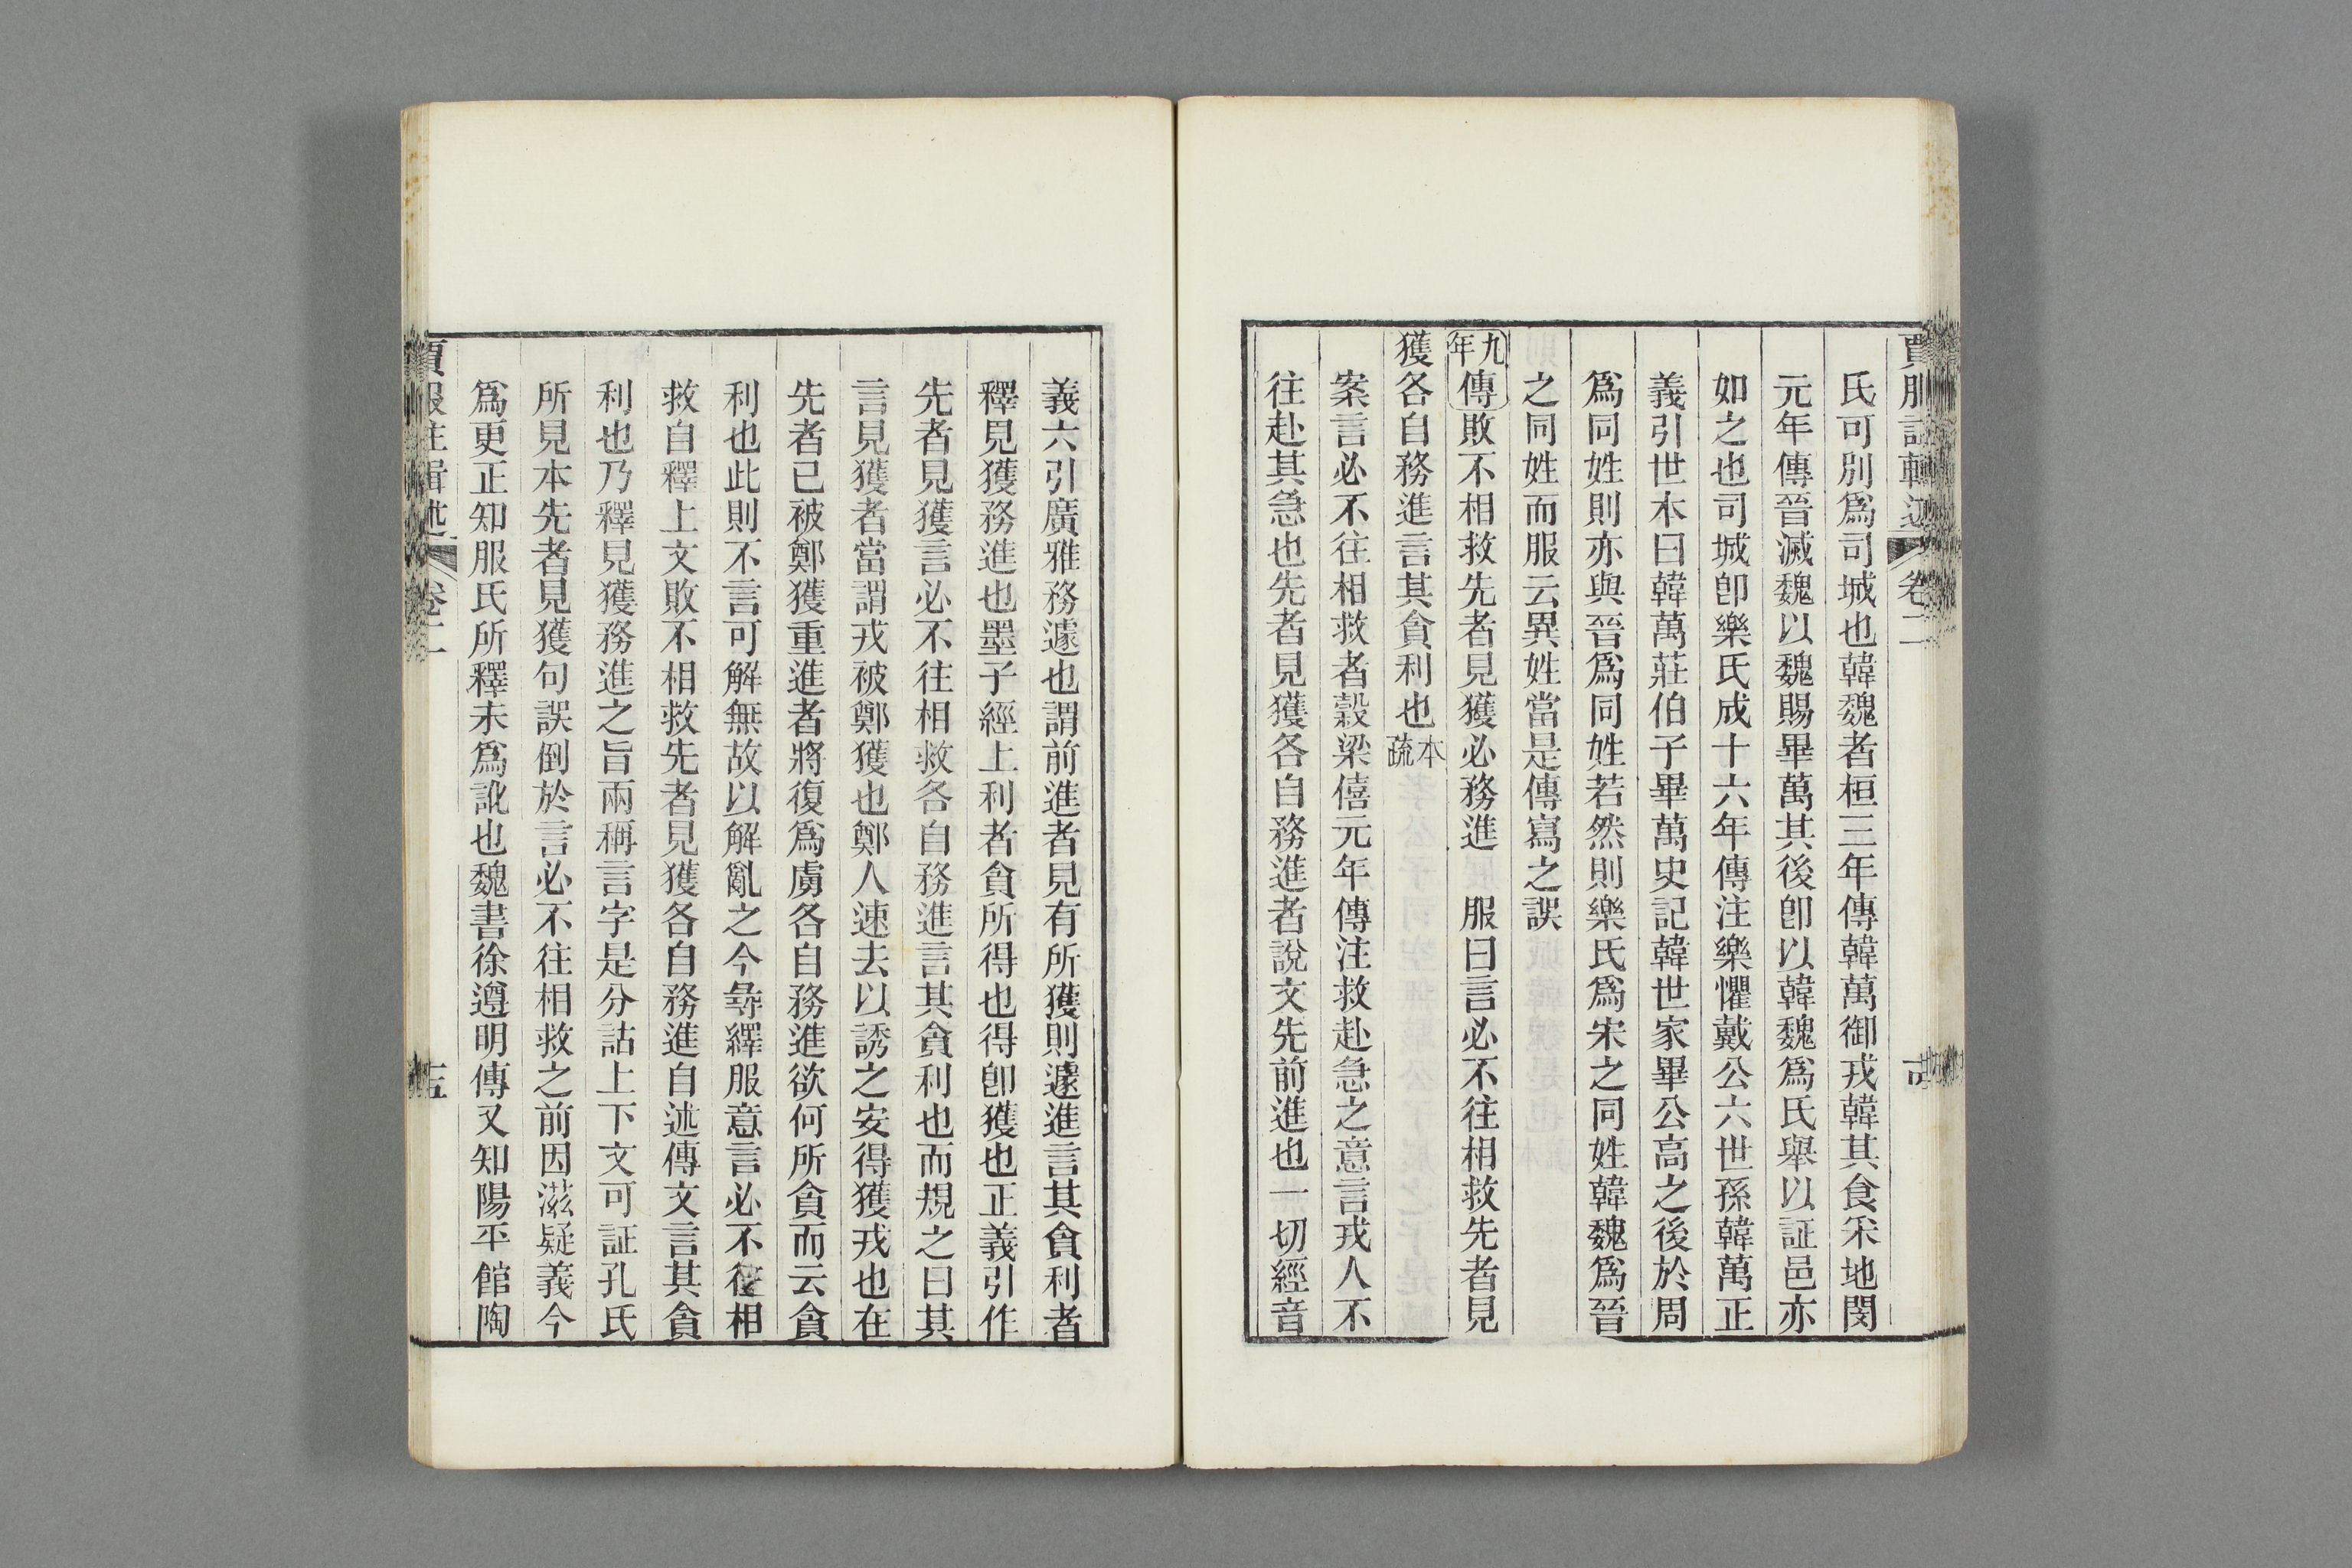 賈服註輯述 卷二
氏可別爲司城也韓魏者桓三年傳韓萬御戎韓其食采地閔
元年傳晉滅魏以魏賜畢萬其後卽以韓魏爲氏舉以証邑亦
如之也司城卽樂氏成十六年傳注樂懼戴公六世孫韓萬正
義引世本曰韓萬莊伯子畢萬史記韓世家畢公高之後於周
爲同姓則亦與晉爲同姓若然則樂氏爲宋之同姓韓魏爲晉
之同姓而服云異姓當是傳寫之誤
九年傳敗不相救先者見獲必務進 服曰言必不往相救先者見
獲各自務進言其貪利也本疏
案言必不往相救者穀梁僖元年傳注救赴急之意言戎人不
往赴其急也先者見獲各自務進者說文先前進也一切經音
義六引廣雅務遽也謂前進者見有所獲則遽進言其貪利者
釋見獲務進也墨子經上利者貪所得也得卽獲也正義引作
先者見獲言必不往相救各自務進言其貪利也而規之曰其
言見獲者當謂戎被鄭獲也鄭人速去以誘之安得獲戎也在
先者已被鄭獲重進者將復爲虜各自務進欲何所貪而云貪
利也此則不言可解無故以解亂之今尋繹服意言必不往相
救自釋上文敗不相救先者見獲各自務進自述傳文言其貪
利也乃釋見獲務進之旨兩稱言字是分詁上下文可証孔氏
所見本先者見獲句誤倒於言必不往相救之前因滋疑義今
爲更正知服氏所釋未爲訛也魏書徐遵明傳又知陽平館陶
賈服註輯述 卷二 十五